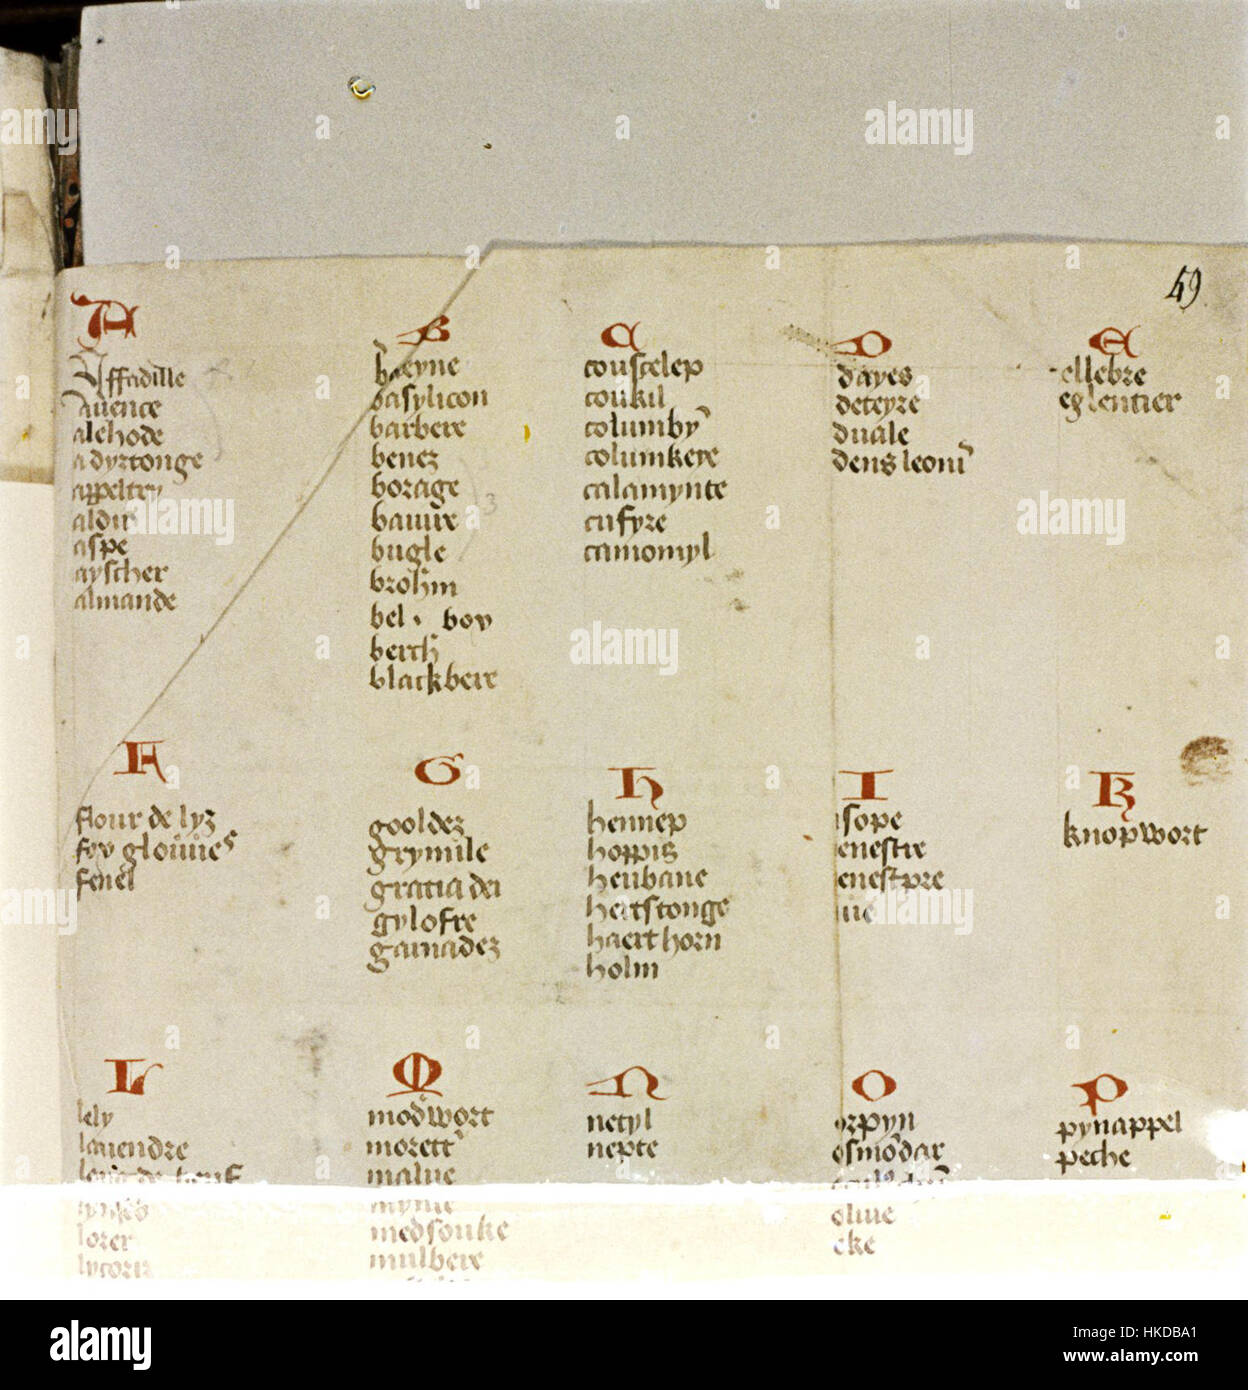 49
A
Affadille
Auence
alehode
adyrtonge
appeltry
aldir
aspe
ayscher
almande
B
basylicon
barbere
benez
borage
bugle
brohm
bel. boy
berch
blackbere
C
couscelep
coukil
columby
columkere
calamynte
cufyre
camomyl
D
dayes
deteyre
duale
dens leoni
E
ellebre
eglentier
F
flour de lyz
fox gloiues
fenel
G
gooldez
grymile
gratia dei
gylofre
gamadez
H
hennep
hoppis
henbane
hertstonge
haerthorn
holm
I
isope
K
knopwort
L
lely
lauendre
lorer
M
modwort
morett
malue
medsouke
mulbere
N
netyl
nepte
O
orpyn
osmodar
oliue
oke
P
pynappel
peche
alamy
www.alamy.com
Image ID: HKDBA1